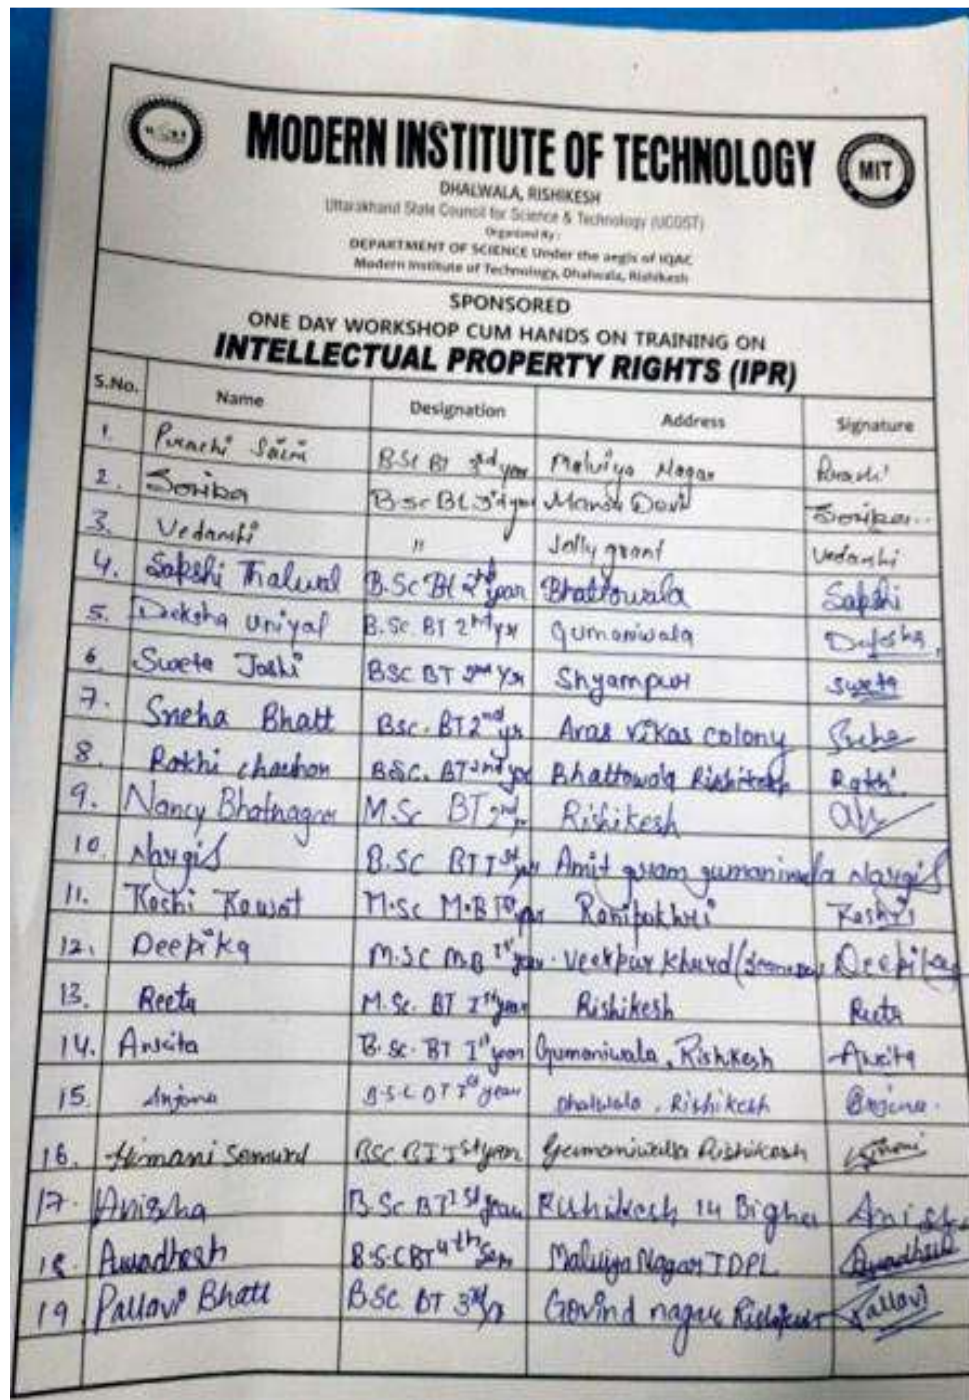 MODERN INSTITUTE OF TECHNOLOGY
MIT
DHALWALA, RISHIKESH
Uttarakhand State Council for Science & Technology (UCOST)
Organized By :
DEPARTMENT OF SCIENCE Under the aegis of IQAC
Modern Institute of Technology, Dhalwala, Rishikesh
SPONSORED
ONE DAY WORKSHOP CUM HANDS ON TRAINING ON
INTELLECTUAL PROPERTY RIGHTS (IPR)
S.No. Name Designation Address Signature
1. Prachi Saini BSc BT 3rd year Malviya Nagar Prachi
2. B.Sc 3rd year Mansa Devi
3. Vedanshi " Jolly grant Vedanshi
4. Sakshi Thalwal B.Sc 2nd year Bhattowala Sakshi
5. Deeksha Uniyal B.Sc. BT 2nd yr Gumaniwala
6 Sweta Joshi BSC BT 2nd Yr Shyampur Sweta
7. Sneha Bhatt Bsc. BT 2nd yr Avas Vikas colony
8. Rakhi chauhan BSC. BT 2nd yr Bhattowala Rishikesh Rakhi
9. Nancy Bhatnagar M.Sc BT 2nd Rishikesh
10. Nargis B.SC BT Ist yr Amit gram gumaniwala Nargis
11. Rawat M.Sc M.B Ranipokhri
12. Deepika M.SC MB Ist year. Veerpur Khurd Deepika
13. Reeta M.Sc. BT Ist year Rishikesh Reeta
14. Ankita B.Sc. BT Ist year Gumaniwala, Rishikesh Ankita
15. Anjana B.S.C BT Ist year Dhalwala, Rishikesh Anjana.
16. Himani Semwal BSC BT Ist year Gumaniwala Rishikesh
17. Anisha B.Sc BT Ist year Rishikesh 14 Bigha Anisha
18 Awadhesh B.S.C BT 4th Sem Malviya Nagar IDPL Awadhesh
19 Pallavi Bhatt BSC BT 3rd yr Govind nagar Rishikesh Pallavi